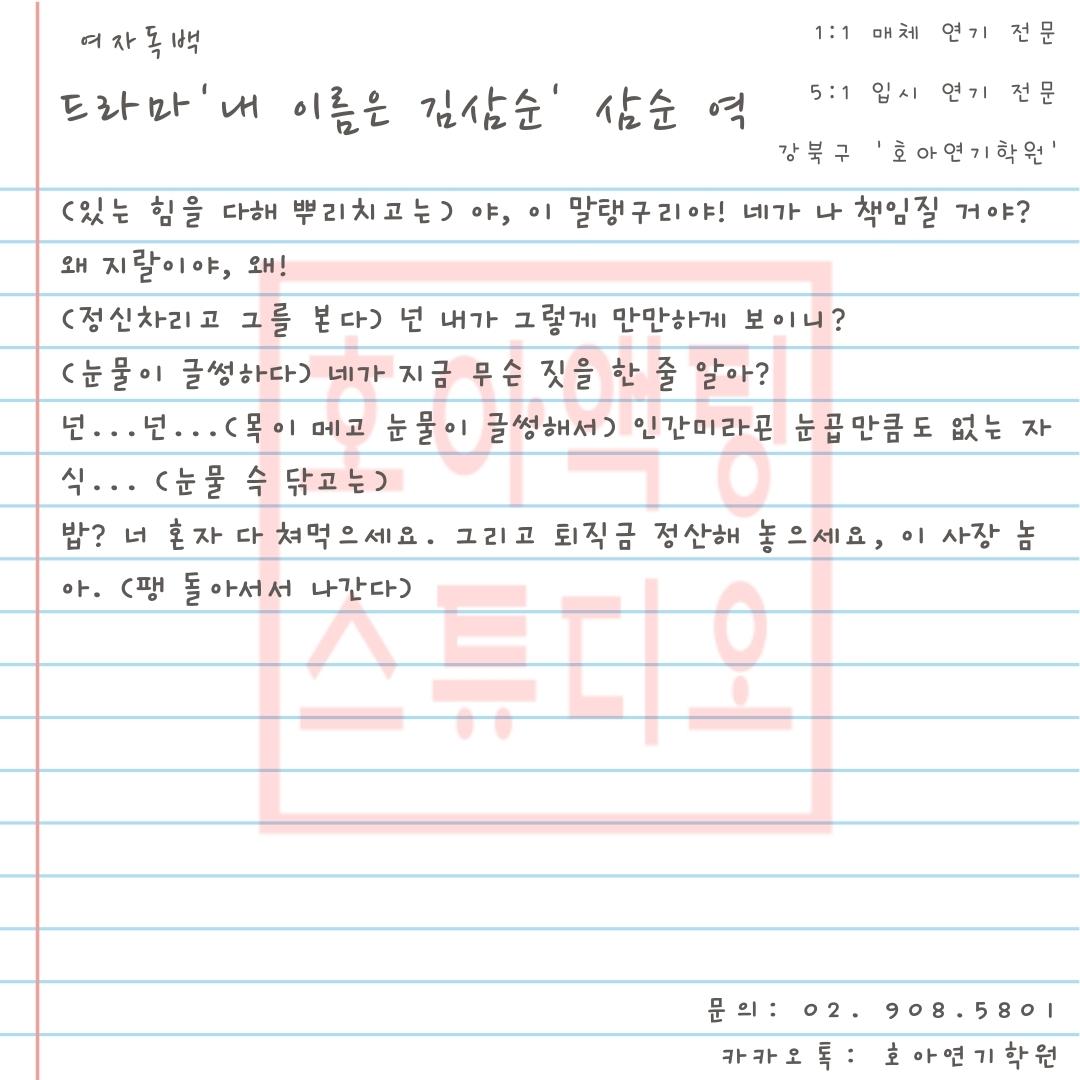 여자독백
드라마'내 이름은 김삼순' 삼순 역
1:1 매체 연기 전문
5:1 입시 연기 전문
강북구 '호아연기학원'
(있는 힘을 다해 뿌리치고는) 야, 이 말탱구리야! 네가 나 책임질 거야?
왜 지랄이야, 왜!
(정신차리고 그를 본다) 넌 내가 그렇게 만만하게 보이니?
(눈물이 글썽하다) 네가 지금 무슨 짓을 한 줄 알아?
넌...넌...(목이 메고 눈물이 글썽해서) 인간미라곤 눈곱만큼도 없는 자
식... (눈물 슥 닦고는)
밥? 너 혼자 다 쳐먹으세요. 그리고 퇴직금 정산해 놓으세요, 이 사장 놈
아. (팽 돌아서서 나간다)
호아액팅
스튜디오
문의: 02. 908.5801
카카오톡: 호아연기학원